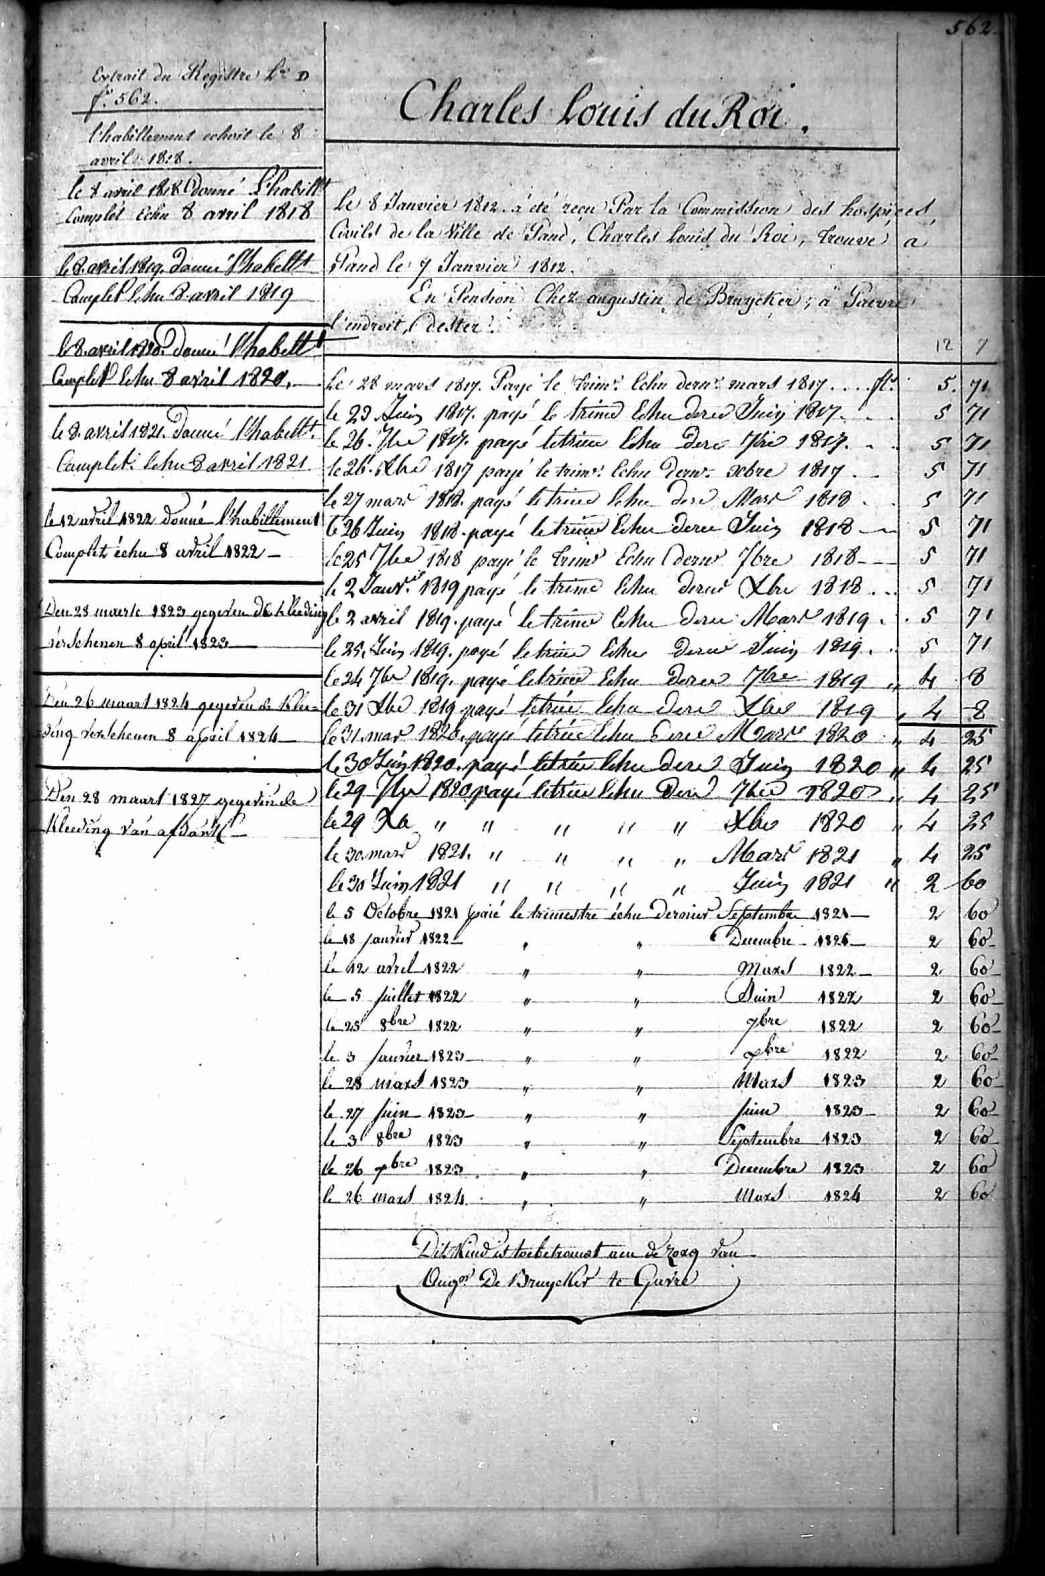 562.
Extrait du Registre Lre D
f° 562.
l'habillement echoit le 8
avril 1818.
le 8 avril 1818 donné l'habillt
Complet echu 8 avril 1818
le 8 avril 1819. donné l'habellt
Complet Echu 8 avril 1819
le 8 avril 1820. donné l'habellt
Complet Echu 8 avril 1820.
le 8 avril 1821. donné l'habellt.
Complet. Echu 8 avril 1821
le 12 avril 1822 donné l'habillement
Complet échu 8 avril 1822 —
Den 28 maerte 1823 gegeven de kleeding
verschenen 8 april 1823 —
Den 26 maart 1824 gegeven de klee=
ding verschenen 8 april 1824 —
Den 28 maart 1827 gegeven de
Kleeding van afstand
Charles Louis du Roi.
Le 8 Janvier 1812. à été reçu Par la Commission des hospices
Civils de la Ville de Gand, Charles Louis du Roi, trouvé à
Gand le 7 Janvier 1812.
En Pension Chez augustin de Bruycker, à Gavre
l'endroit, dester
12 7
Le 28 mars 1817. Payé le trimr. Echu dernr. mars 1817 .... fl. 5. 71
le 23 Juin 1817. payé le trime Echu derer Juin 1817. .. 5 71
le 26. 7bre 1817. payé le trime Echu dere 7bre 1817. .. 5 71
le 26. Xbre 1817 payé le trimr. Echu dernr. xbre 1817 .. 5 71
le 27 mars 1818. payé le trime Echu dere Mars 1818 .. 5 71
le 26 Juin 1818. payé le trime Echu derer Juin 1818 — 5 71
le 25 7bre 1818 payé le trimr Echu dernr 7bre 1818 --- 5 71
le 2 Janvr. 1819 payé le trime Echu derer Xbre 1818 ... 5 71
le 2 avril 1819. payé le trime Echu derer Mars 1819 .. 5 71
le 25. Juin 1819. payé le trime Echu derer Juin 1819. .. 5 71
le 24 7bre 1819. payé le trime Echu derer 7bre 1819 „ 4 8
le 31 Xbre 1819 payé le trie Echu dere Xbre 1819 „ 4 8
le 31. mars 1820. payé le trie Echu dere Mars 1820 „ 4 25
le 30 Juin 1820. payé le trie Echu dere Juin 1820 „ 4 25
le 29 7bre 1820 payé le trie Echu dere 7bre 1820 „ 4 25
le 29 Xbre „ „ „ „ „ Xbre 1820 „ 4 25
le 30 mars 1821. „ „ „ „ Mars 1821 „ 4 25
le 30 Juin 1821 „ „ „ „ Juin 1821 „ 2 60
le 5 Octobre 1821 paié le trimestre échu dernier Septembre 1821 — 2 60
le 18 janvier 1822 — „ „ Decembre 1821 — 2 60
le 12 avril 1822 „ „ Mars 1822 — 2 60
le 5 juillet 1822 „ „ Juin 1822 2 60
le 25 8bre 1822 „ „ 7bre 1822 2 60
le 3 janvier 1823 „ „ xbre 1822 2 60
le 28 mars 1823 „ „ Mars 1823 2 60
le 27 juin 1823 „ „ juin 1823 — 2 60
le 3 8bre 1823 „ „ Septembre 1823 2 60
le 26 xbre 1823. „ „ Decembre 1823 2 60
le 26 mars 1824. „ „ Mars 1824 2 60
Dit Kind is toebetrouwt aen de zorg van
Augn. De Bruycker te Gavre